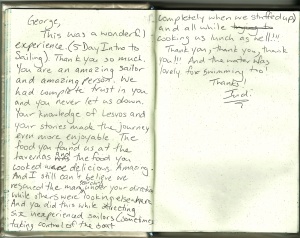 George,
This was a wonderful
experience (5 Day Intro to
Sailing). Thank you so much.
You are an amazing sailor
and amazing person. We
had complete trust in you
and you never let us down.
Your knowledge of Lesvos and
your stories made the journey
even more enjoyable. The
food you found us at the
tavernas and the food you
cooked were delicious. Amazing.
And I still can't believe we
rescued the man under your direction
while others were looking elsewhere.
And you did this while directing
six inexperienced sailors (sometimes
taking control of the boat
completely when we stuffed up)
and all while
cooking us lunch as well!!!
Thank you, thank you, thank
you!!! And the water was
lovely for swimming too!
Thanks!
Jodi